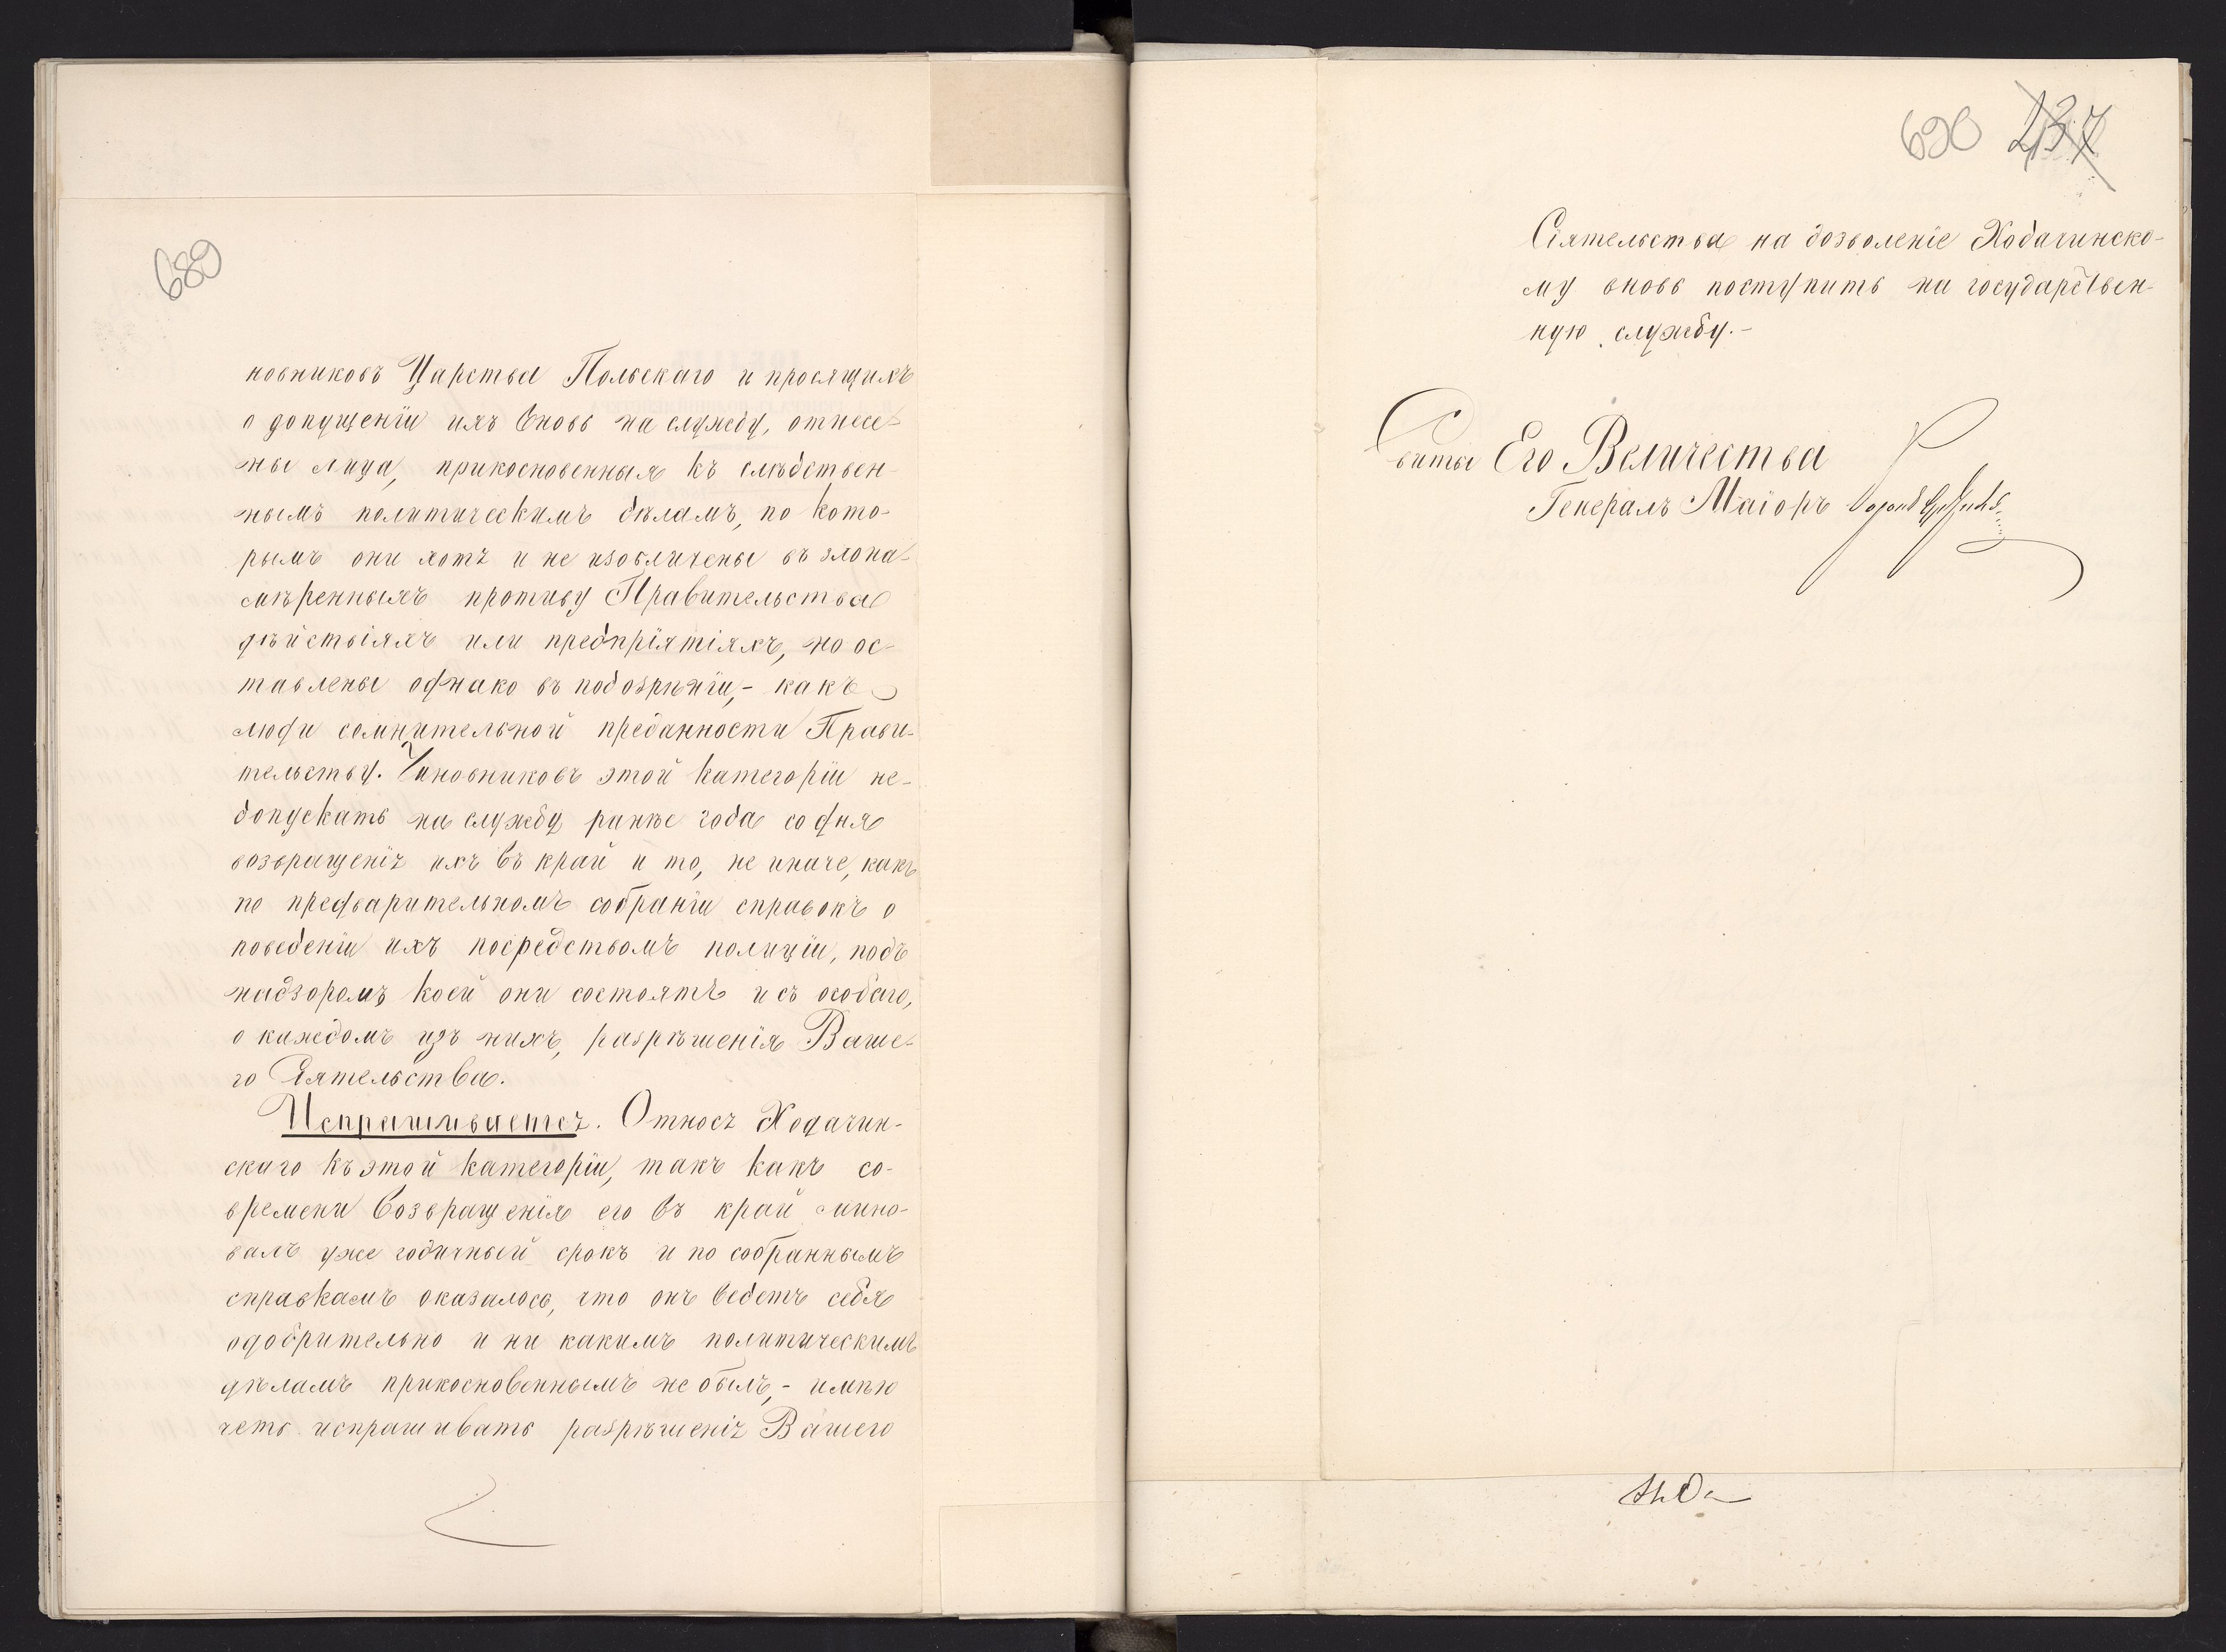 689
новниковъ Царства Польскаго и просящихъ
о допущеніи ихъ вновь на службу, отнесе-
ны лица, прикосновенныя къ слѣдствен-
нымъ политическимъ дѣламъ, по кото-
рымъ они хотя и не изобличены въ злона-
мѣренныхъ противу Правительства
дѣйствіяхъ или предпріятіяхъ, но ос-
тавлены однако въ подозрѣніи,- какъ
люди сомнительной преданности Прави-
тельству. Чиновниковъ этой категоріи не-
допускать на службу ранѣе года со дня
возвращенія ихъ въ край и то, не иначе, какъ
по предварительномъ собраніи справокъ о
поведеніи ихъ посредствомъ полиціи, подъ
надзоромъ коей они состоятъ и съ особаго,
о каждомъ изъ нихъ, разрѣшенія Ваше-
го Сіятельства.
Испрашивается. Относя Ходачин-
скаго къ этой категоріи, такъ какъ со-
времени возвращенія его въ край мино-
валъ уже годичный срокъ и по собраннымъ
справкамъ оказалось, что онъ ведетъ себя
одобрительно и ни какимъ политическимъ
дѣламъ прикосновеннымъ не былъ,- имѣю
честь испрашивать разрѣшенія Вашего
690 237
Сіятельства на дозволеніе Ходачинско-
му вновь поступить на государствен-
ную службу.-
Свиты Его Величества
Генералъ Маіоръ